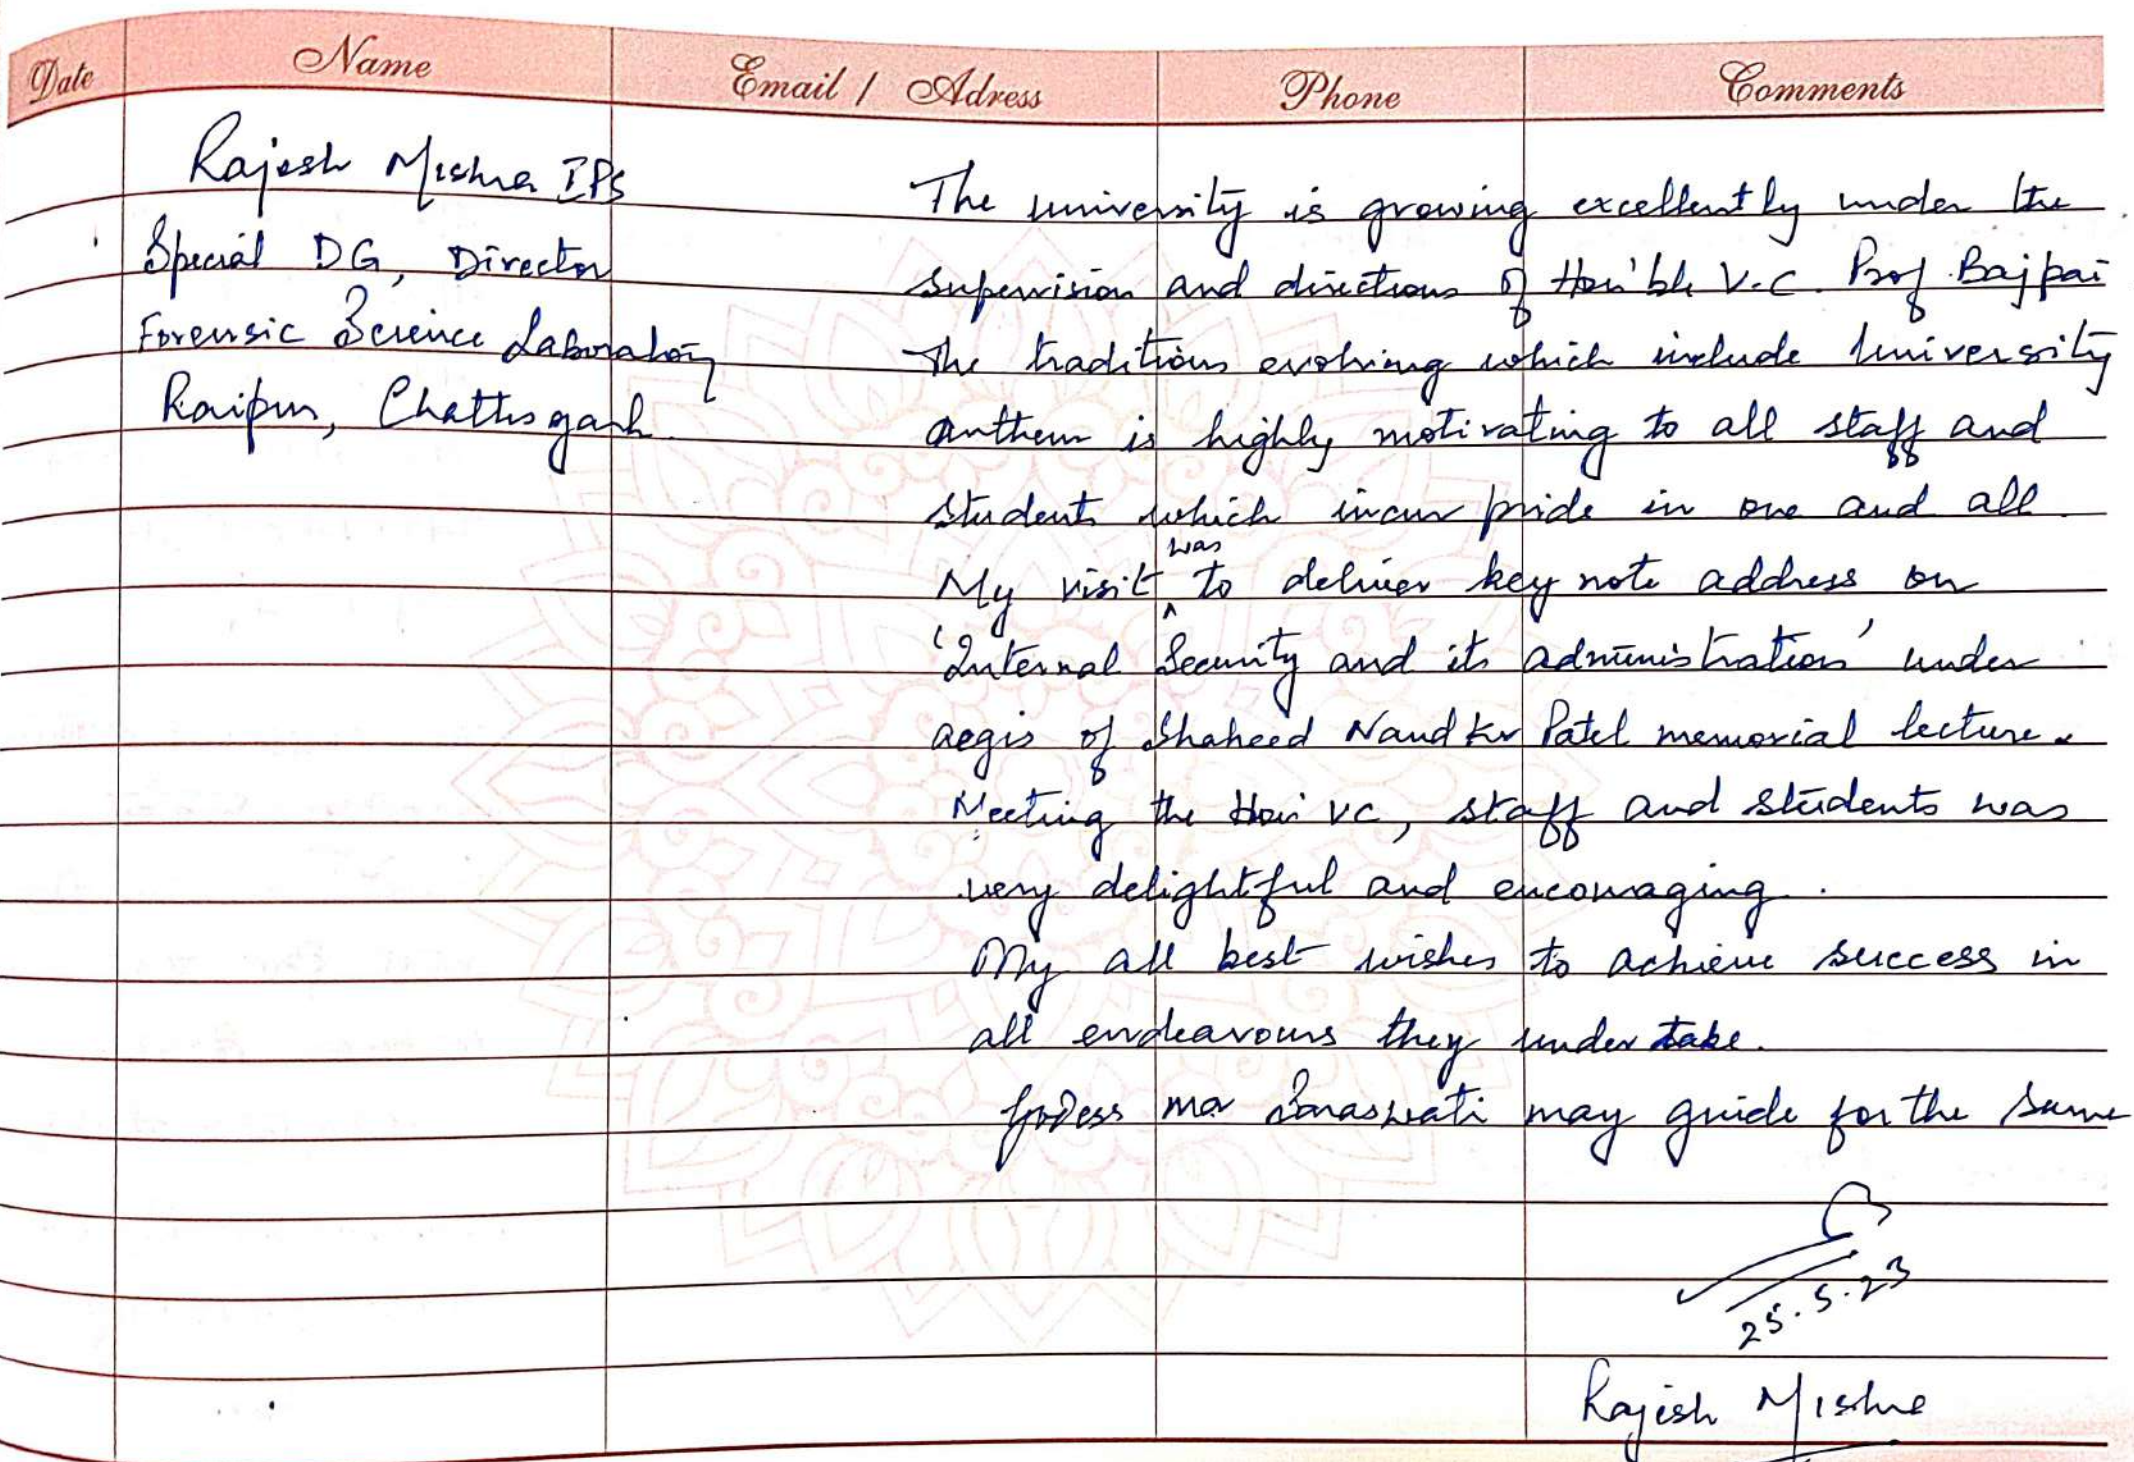 Date Name Email / Adress Phone Comments
Rajesh Mishra IPS
Special DG, Director
Forensic Science Laboratory
Raipur, Chattisgarh.
The university is growing excellently under the
supervision and directions of Hon'ble V.C. Prof Bajpai
The traditions evolving which include University
anthem is highly motivating to all staff and
students which incur pride in one and all.
My visit was to deliver key note address on
'Internal Security and its administration' under
aegis of Shaheed Nand Kr Patel memorial lecture.
Meeting the Hon VC, staff and students was
very delightful and encouraging.
My all best wishes to achieve success in
all endeavours they undertake.
Godess ma Saraswati may guide for the same
25.5.23
Rajesh Mishra